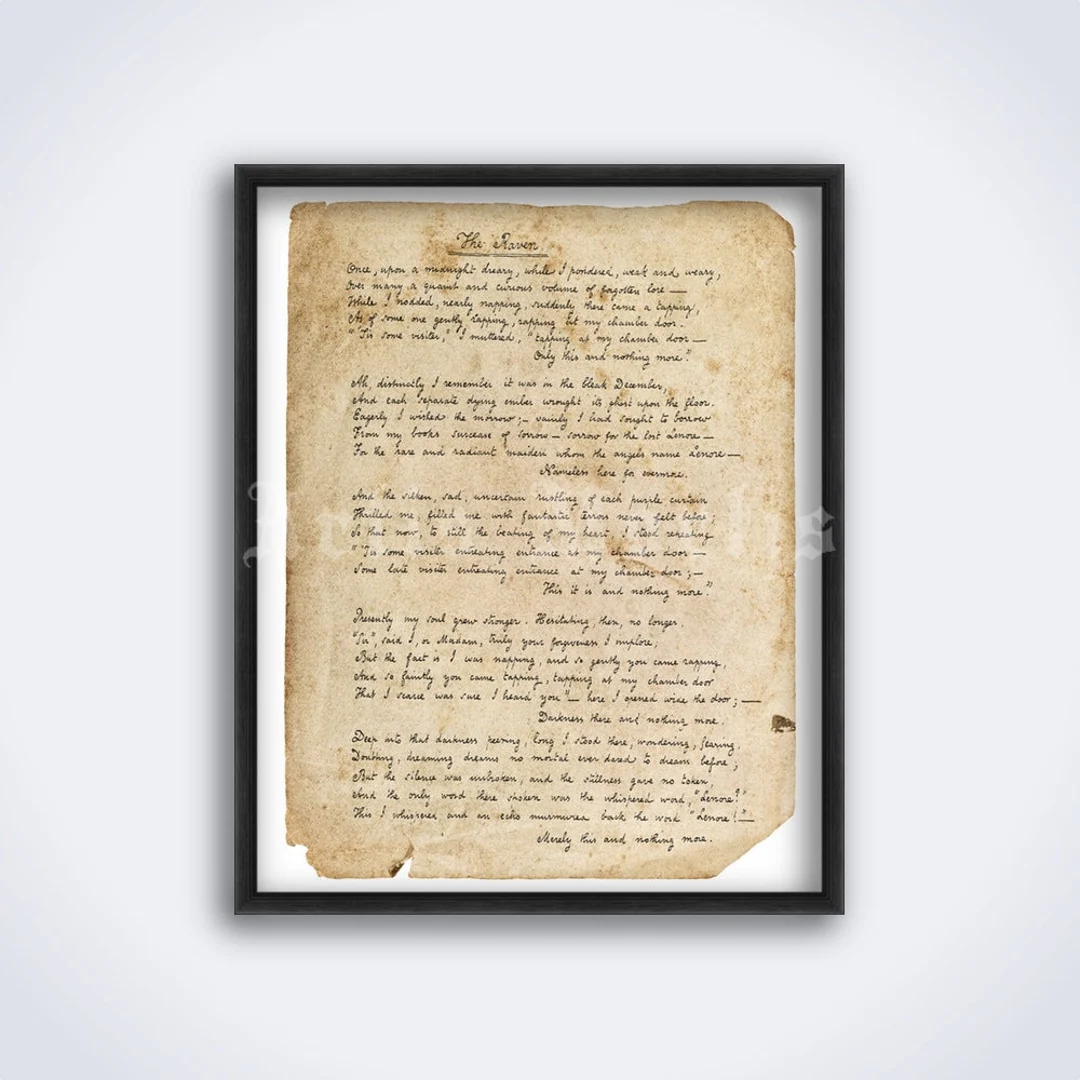 The Raven.
Once, upon a midnight dreary, while I pondered, weak and weary,
Over many a quaint and curious volume of forgotten lore —
While I nodded, nearly napping, suddenly there came a tapping,
As of some one gently rapping, rapping at my chamber door.
"'Tis some visiter," I muttered, "tapping at my chamber door —
Only this and nothing more."
Ah, distinctly I remember it was in the bleak December,
And each separate dying ember wrought its ghost upon the floor.
Eagerly I wished the morrow; — vainly I had sought to borrow
From my books surcease of sorrow — sorrow for the lost Lenore —
For the rare and radiant maiden whom the angels name Lenore —
Nameless here for evermore.
And the silken, sad, uncertain rustling of each purple curtain
Thrilled me, filled me with fantastic terrors never felt before;
So that now, to still the beating of my heart, I stood repeating
"'Tis some visiter entreating entrance at my chamber door —
Some late visiter entreating entrance at my chamber door; —
This it is and nothing more."
Presently my soul grew stronger. Hesitating, then, no longer,
"Sir", said I, or Madam, truly your forgiveness I implore;
But the fact is I was napping, and so gently you came rapping,
And so faintly you came tapping, tapping at my chamber door
That I scarce was sure I heard you" — here I opened wide the door; —
Darkness there and nothing more.
Deep into that darkness peering, long I stood there, wondering, fearing,
Doubting, dreaming dreams no mortal ever dared to dream before;
But the silence was unbroken, and the stillness gave no token,
And the only word there spoken was the whispered word, "Lenore?"
This I whispered and an echo murmured back the word "Lenore! —
Merely this and nothing more.